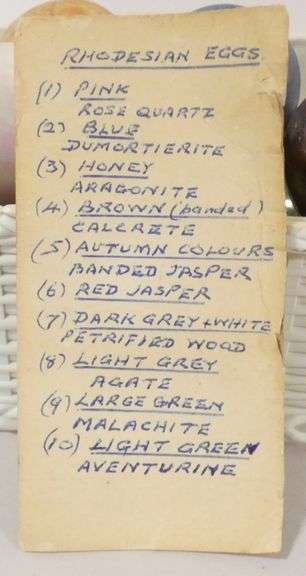 RHODESIAN EGGS
(1) PINK
ROSE QUARTZ
(2) BLUE
DUMORTIERITE
(3) HONEY
ARAGONITE
(4) BROWN (banded)
CALCRETE
(5) AUTUMN COLOURS
BANDED JASPER
(6) RED JASPER
(7) DARK GREY + WHITE
PETRIFIED WOOD
(8) LIGHT GREY
AGATE
(9) LARGE GREEN
MALACHITE
(10) LIGHT GREEN
AVENTURINE